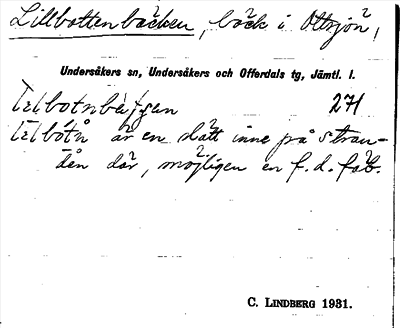 Lillbottenbäcken, bäck i Ottsjön,
Undersåkers sn, Undersåkers och Offerdals tg, Jämtl. l.
271
är en slått inne på stran-
den där, möjligen en f.d. fäb.
C. LINDBERG 1931.